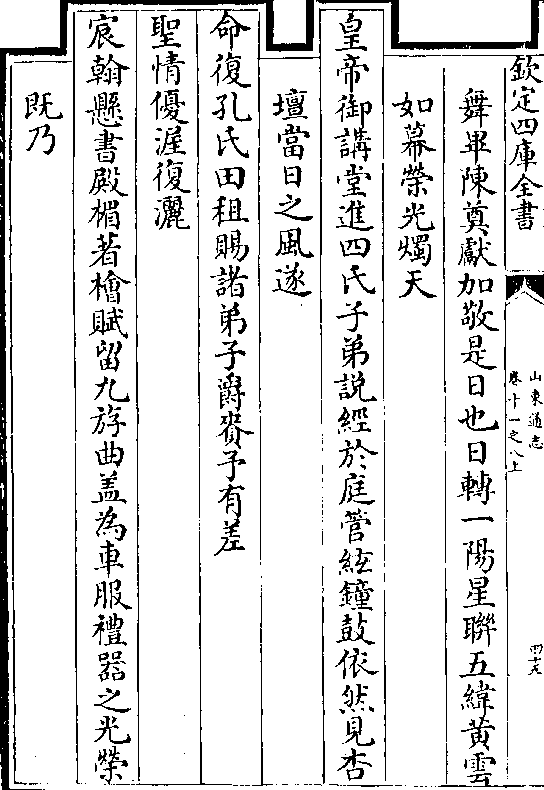 欽定四庫全書
山東通志
卷十一之八上
四十五
舞畢陳奠獻加敬是日也日轉一陽星聯五緯黃雲
如幕榮光燭天
皇帝御講堂進四氏子弟説經於庭管絃鐘鼓依然見杏
壇當日之風遂
命復孔氏田租賜諸弟子爵賚予有差
聖情優渥復灑
宸翰懸書殿楣著檜賦留九斿曲盖為車服禮器之光榮
既乃